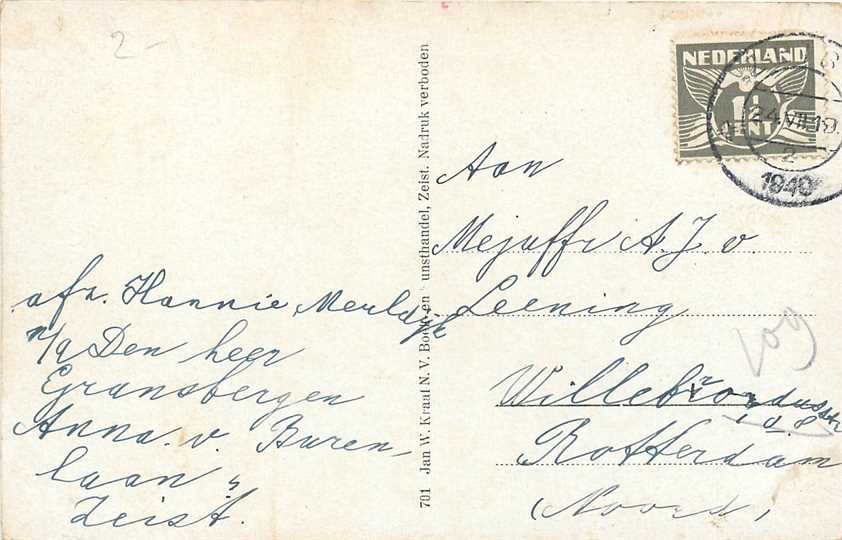 2-
afz. Hannie Merldijk
p/a Den heer
Gransbergen
Anna v. Buren-
laan 4
Zeist.
701 Jan W. Kraal N.V. Boek- en unsthandel, Zeist. Nadruk verboden
NEDERLAND
1½
CENT
24.VII.19
2
1940
Aan
Mejuffr A.J. v.
Leening
109
Willebrordusstr
108
Rotterdam
(Noord)